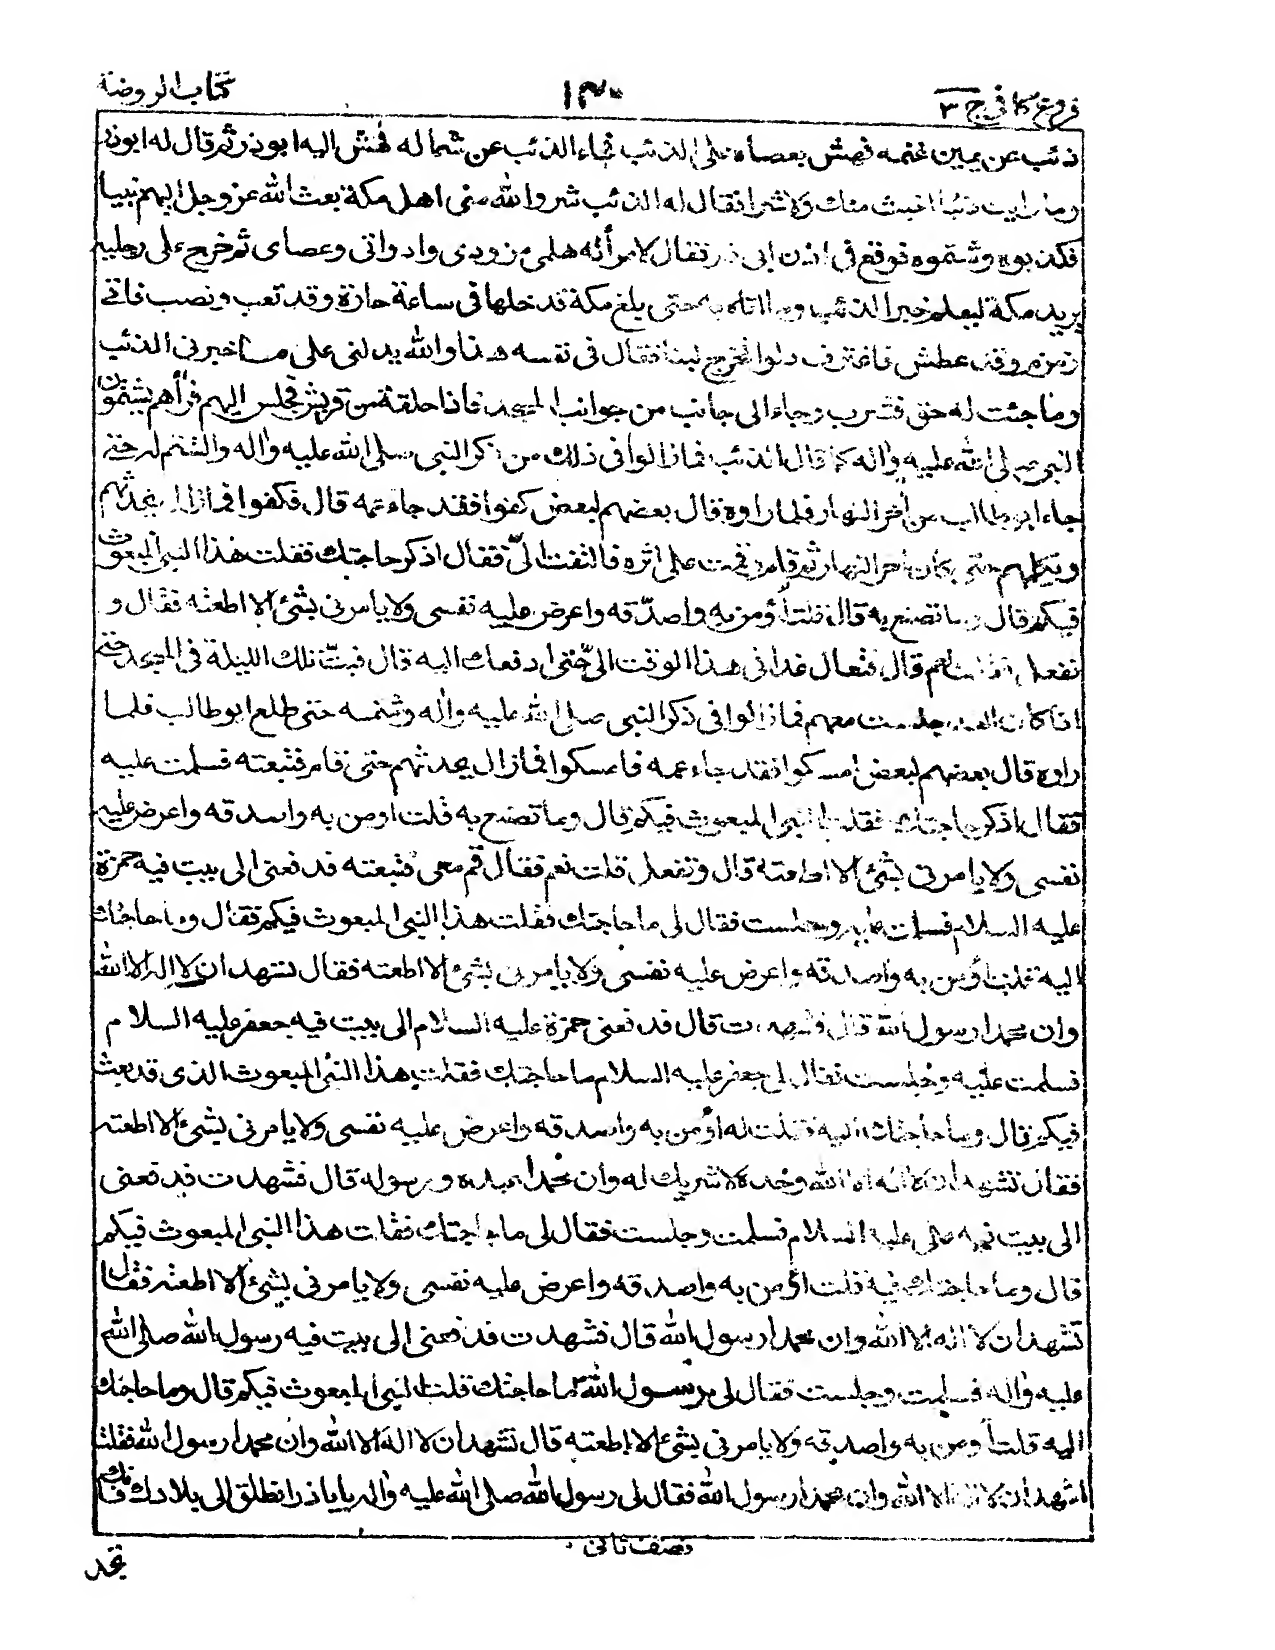 كتاب الروضة
١٣٠
فروع كافى ج ٣
ذئب عن يمين غنمه فهش بعصاه على الذئب فجاء الذئب عن شماله فهش اليه ابوذر ثم قال له ابوذر
وما رايت ذئبا اخبث منك ولا شرا فقال له الذئب شر والله منى اهل مكة بعث الله عز وجل اليهم نبيا
فكذبوه وشتموه فوقع فى اذن ابى ذر فقال لامرأته هلمى مزودى وادواتى وعصاى ثم خرج على رجليه
يريد مكة ليعلم خبر الذئب وما اتاه به حتى بلغ مكة فدخلها فى ساعة حارة وقد تعب ونصب فاتى
زمزم وقد عطش فاغترف دلوا فخرج لبنا فقال فى نفسه هذا والله يدلنى على ما خبرنى الذئب
وما جئت له حق فشرب وجاء الى جانب من جوانب المسجد فاذا حلقة من قريش فجلس اليهم فرأهم يشتمون
النبى صلى الله عليه واله كما قال الذئب فما زالوا فى ذلك من ذكر النبى صلى الله عليه واله والشتم له حتى
جاء ابو طالب من أخر النهار فلما راوه قال بعضهم لبعض كفوا فقد جاء عمه قال فكفوا فما زال يحدثهم
ويكلمهم حتى كان اخر النهار ثم قام وقمت على اثره فالتفت الىّ فقال اذكر حاجتك فقلت هذا النبى المبعوث
فيكم قال وما تصنع به قال قلت أؤمن به واصدّقه واعرض عليه نفسى ولا يامرنى بشئ الا اطعته فقال و
تفعل فقلت نعم قال فتعال غدا فى هذا الوقت الىّ حتى ادفعك اليه قال فبتّ تلك الليلة فى المسجد حتى
اذا كان الغد جلست معهم فما زالوا فى ذكر النبى صلى الله عليه واله وشتمه حتى طلع ابو طالب فلما
راوه قال بعضهم لبعض امسكوا فقد جاء عمه فامسكوا فما زال يحدثهم حتى قام فتبعته فسلمت عليه
فقال اذكر حاجتك فقلت النبى المبعوث فيكم قال وما تصنع به فقلت اومن به واصدقه واعرض عليه
نفسى ولا يامرنى بشئ الا اطعته قال وتفعل قلت نعم فقال قم معى فتبعته فدفعنى الى بيت فيه حمزة
عليه السلام فسلمت عليه وجلست فقال لى ما حاجتك فقلت هذا النبى المبعوث فيكم فقال وما حاجتك
اليه قلت أؤمن به واصدقه واعرض عليه نفسى ولا يامرنى بشئ الا اطعته فقال تشهد ان لا اله الا الله
وان محمدا رسول الله قال فشهدت قال فدفعنى حمزة عليه السلام الى بيت فيه جعفر عليه السلام
فسلمت عليه وجلست فقال لى جعفر عليه السلام ما حاجتك فقلت هذا النبى المبعوث الذى قد بعث
فيكم قال وما حاجتك اليه فقلت له أؤمن به واصدقه واعرض عليه نفسى ولا يامرنى بشئ الا اطعته
فقال تشهد ان لا اله الا الله وحده لا شريك له وان محمدا عبده ورسوله قال فشهدت فدفعنى
الى بيت فيه على عليه السلام فسلمت وجلست فقال لى ما حاجتك فقلت هذا النبى المبعوث فيكم
قال وما حاجتك فيه قلت اؤمن به واصدقه واعرض عليه نفسى ولا يامرنى بشئ الا اطعته فقال
تشهد ان لا اله الا الله وان محمدا رسول الله قال فشهدت فدفعنى الى بيت فيه رسول الله صلى الله
عليه واله فسلمت وجلست فقال لى رسول الله ما حاجتك قلت النبى المبعوث فيكم قال وما حاجتك
اليه قلت أومن به واصدقه ولا يامرنى بشئ الا اطعته قال تشهد ان لا اله الا الله وان محمدا رسول الله فقلت
اشهد ان لا اله الا الله وان محمدا رسول الله فقال لى رسول الله صلى الله عليه واله يا باذر انطلق الى بلادك فانك
نصف ثانى
تجد